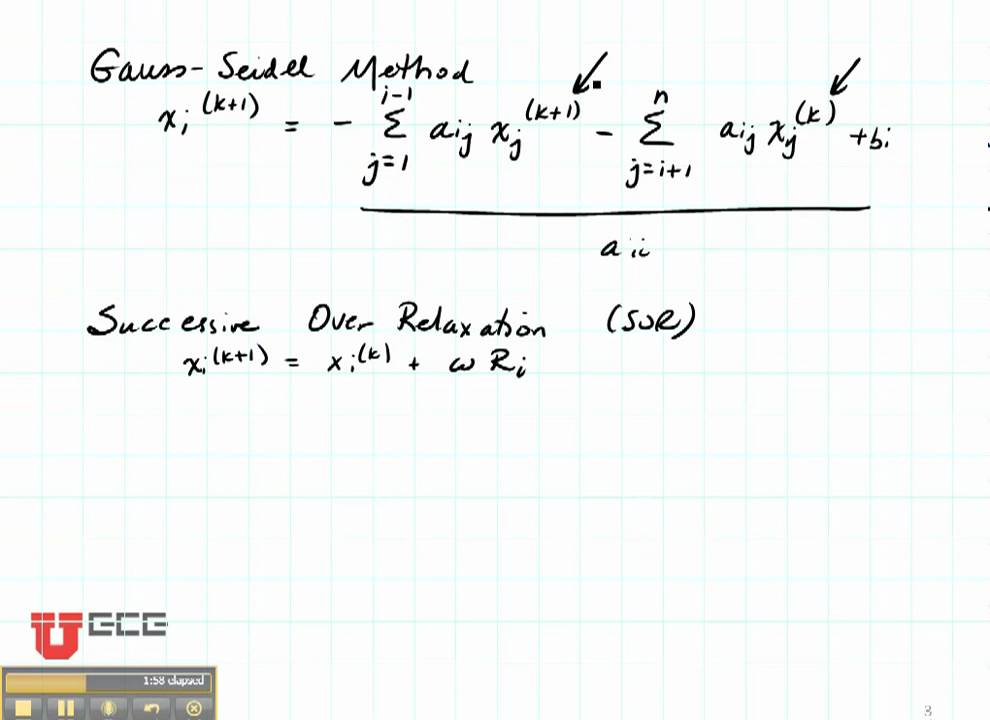 Gauss-Seidel Method
x_i^(k+1) = - Σ_{j=1}^{i-1} a_ij x_j^(k+1) - Σ_{j=i+1}^{n} a_ij x_j^(k) + b_i
a_ii
Successive Over Relaxation (SOR)
x_i^(k+1) = x_i^(k) + ω R_i
U ECE
1:58 elapsed
3